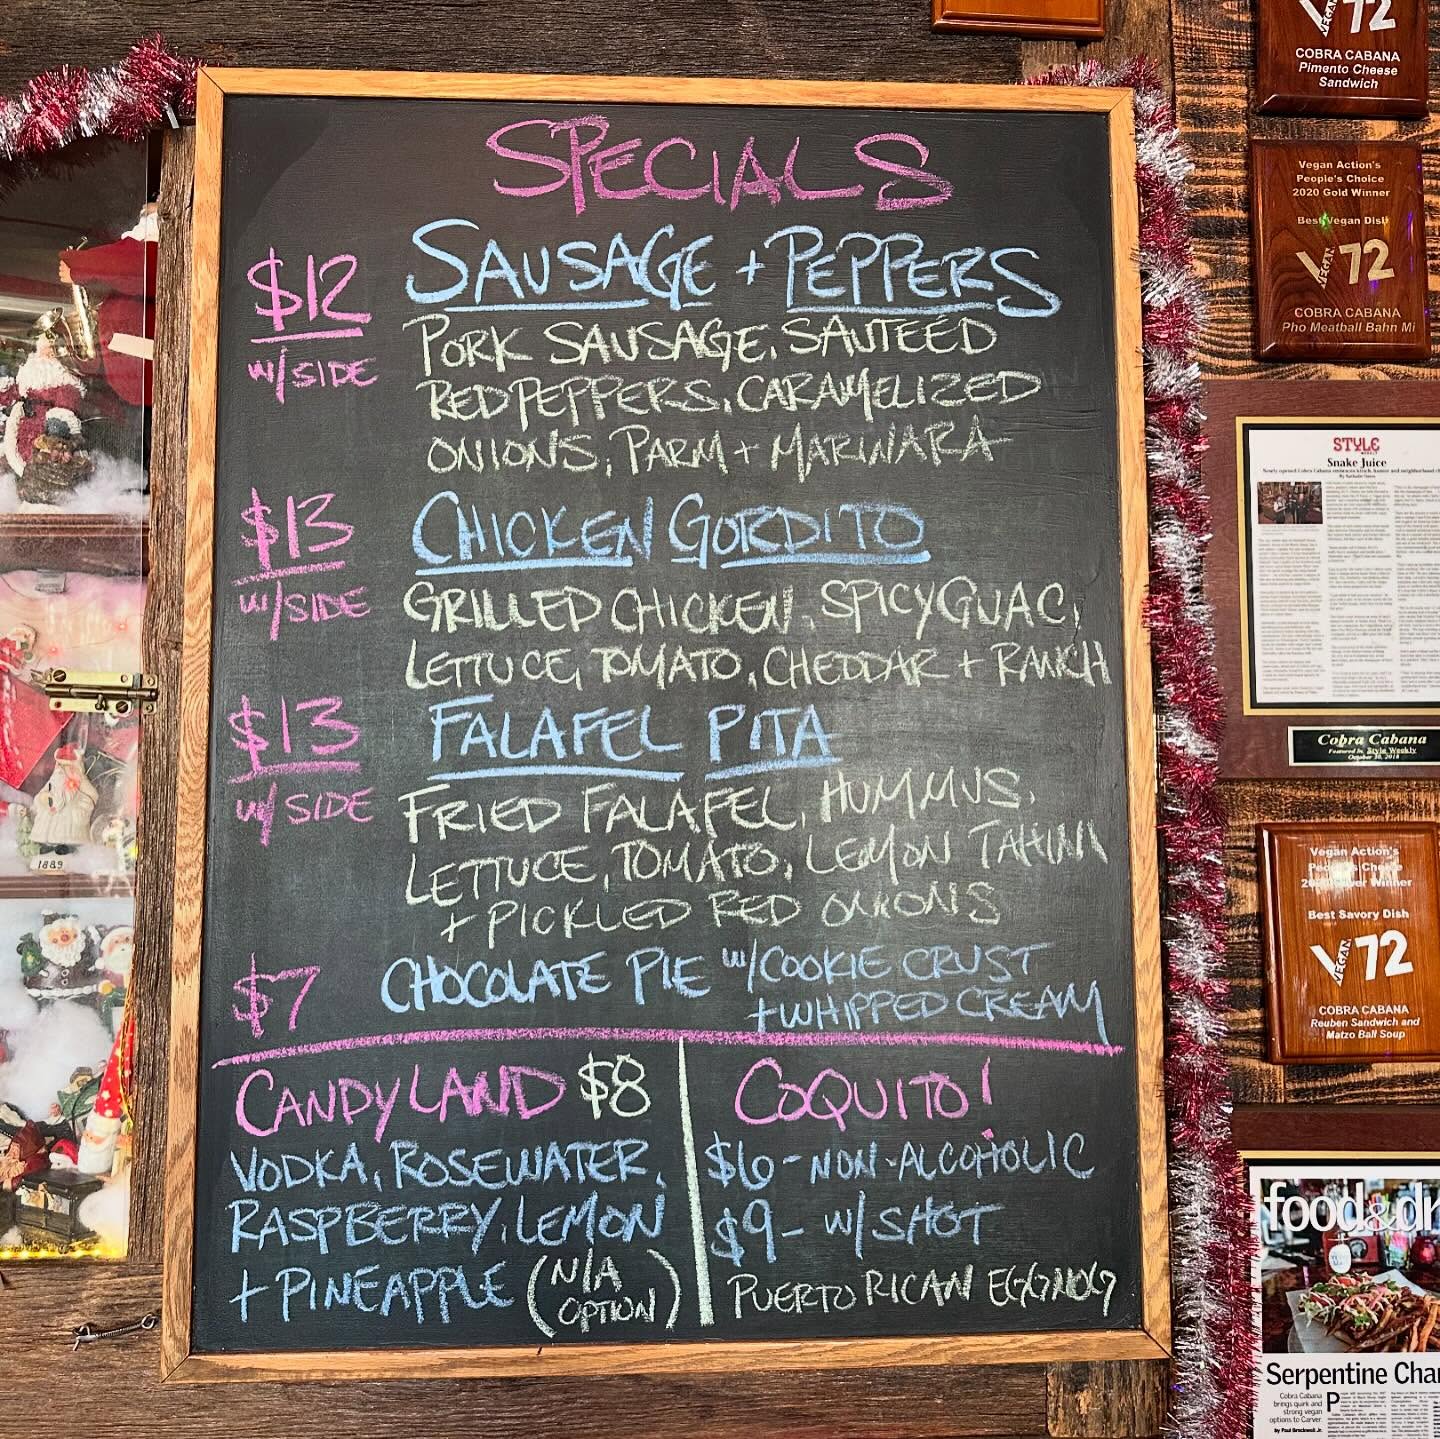 SPECIALS
$12
W/SIDE
SAUSAGE + PEPPERS
PORK SAUSAGE, SAUTEED
RED PEPPERS, CARAMELIZED
ONIONS, PARM + MARINARA
$13
W/SIDE
CHICKEN GORDITO
GRILLED CHICKEN, SPICY GUAC,
LETTUCE, TOMATO, CHEDDAR + RANCH
$13
W/SIDE
FALAFEL PITA
FRIED FALAFEL, HUMMUS,
LETTUCE, TOMATO, LEMON TAHINI
+ PICKLED RED ONIONS
$7
CHOCOLATE PIE W/COOKIE CRUST
+ WHIPPED CREAM
CANDYLAND $8
VODKA, ROSEWATER,
RASPBERRY, LEMON
+ PINEAPPLE (N/A
OPTION)
COQUITO!
$6 - NON-ALCOHOLIC
$9 - W/SHOT
PUERTO RICAN EGGNOG
1889
VEGAN 72
COBRA CABANA
Pimento Cheese
Sandwich
Vegan Action's
People's Choice
2020 Gold Winner
Best Vegan Dish
VEGAN 72
COBRA CABANA
Pho Meatball Bahn Mi
STYLE
WEEKLY
Snake Juice
Cobra Cabana
Featured in Style Weekly
October 30, 2018
Vegan Action's
People's Choice
Winner
Best Savory Dish
VEGAN 72
COBRA CABANA
Reuben Sandwich and
Matzo Ball Soup
food&dr
Serpentine Char
Cobra Cabana
brings quirk and
strong vegan
options to Carver.
by Paul Brockwell Jr.